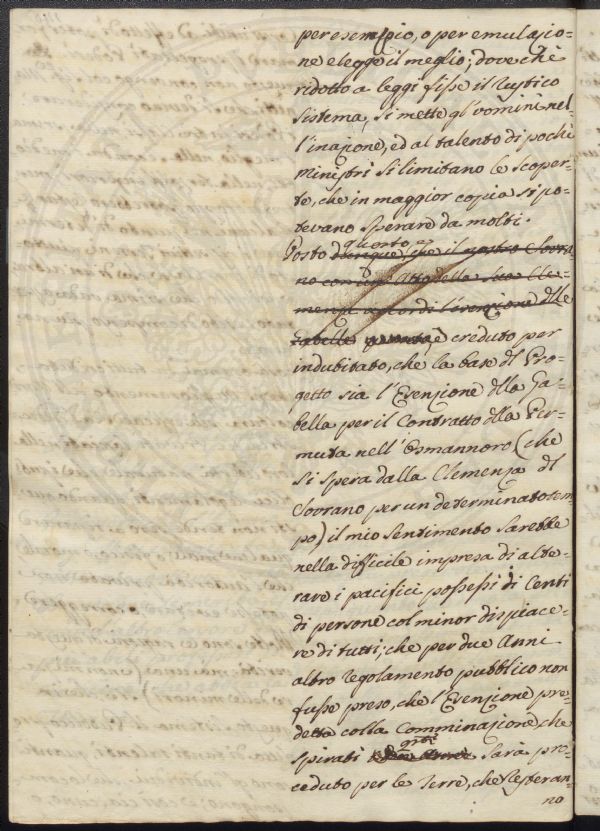 per esempio, o per emulazio-
ne elegge il meglio; dove chè
ridotto a leggi fisse il rustico
sistema, si mette gl'vomini nel-
l'inazione, ed al talento di pochi
ministri si limitano le scoper-
te, che in maggior copia si po-
tevano sperare da molti.
quanto
Posto dunque, che il nostro Sovra
no con un Atto della sua Cle-
menza accordi l'esenzione dlle
Gabelle è creduto per
indubitato, che la base dl Pro-
getto sia l'Esenzione dlla Ga-
bella per il Contratto dlla Per-
muta nell'Osmannoro (che
si spera dalla Clemenza dl
Sovrano per un determinato tem-
po) il mio sentimento sarebbe
nella difficile impresa di alte-
rare i pacifici possessi di Centi
di persone col minor dispiace-
re di tutti; che per due Anni
altro regolamento pubblico non
fusse preso, che l'Esenzione pre-
detta colla Comminazione, che
spirati sarà pro-
ceduto per le Terre, che resteran-
no